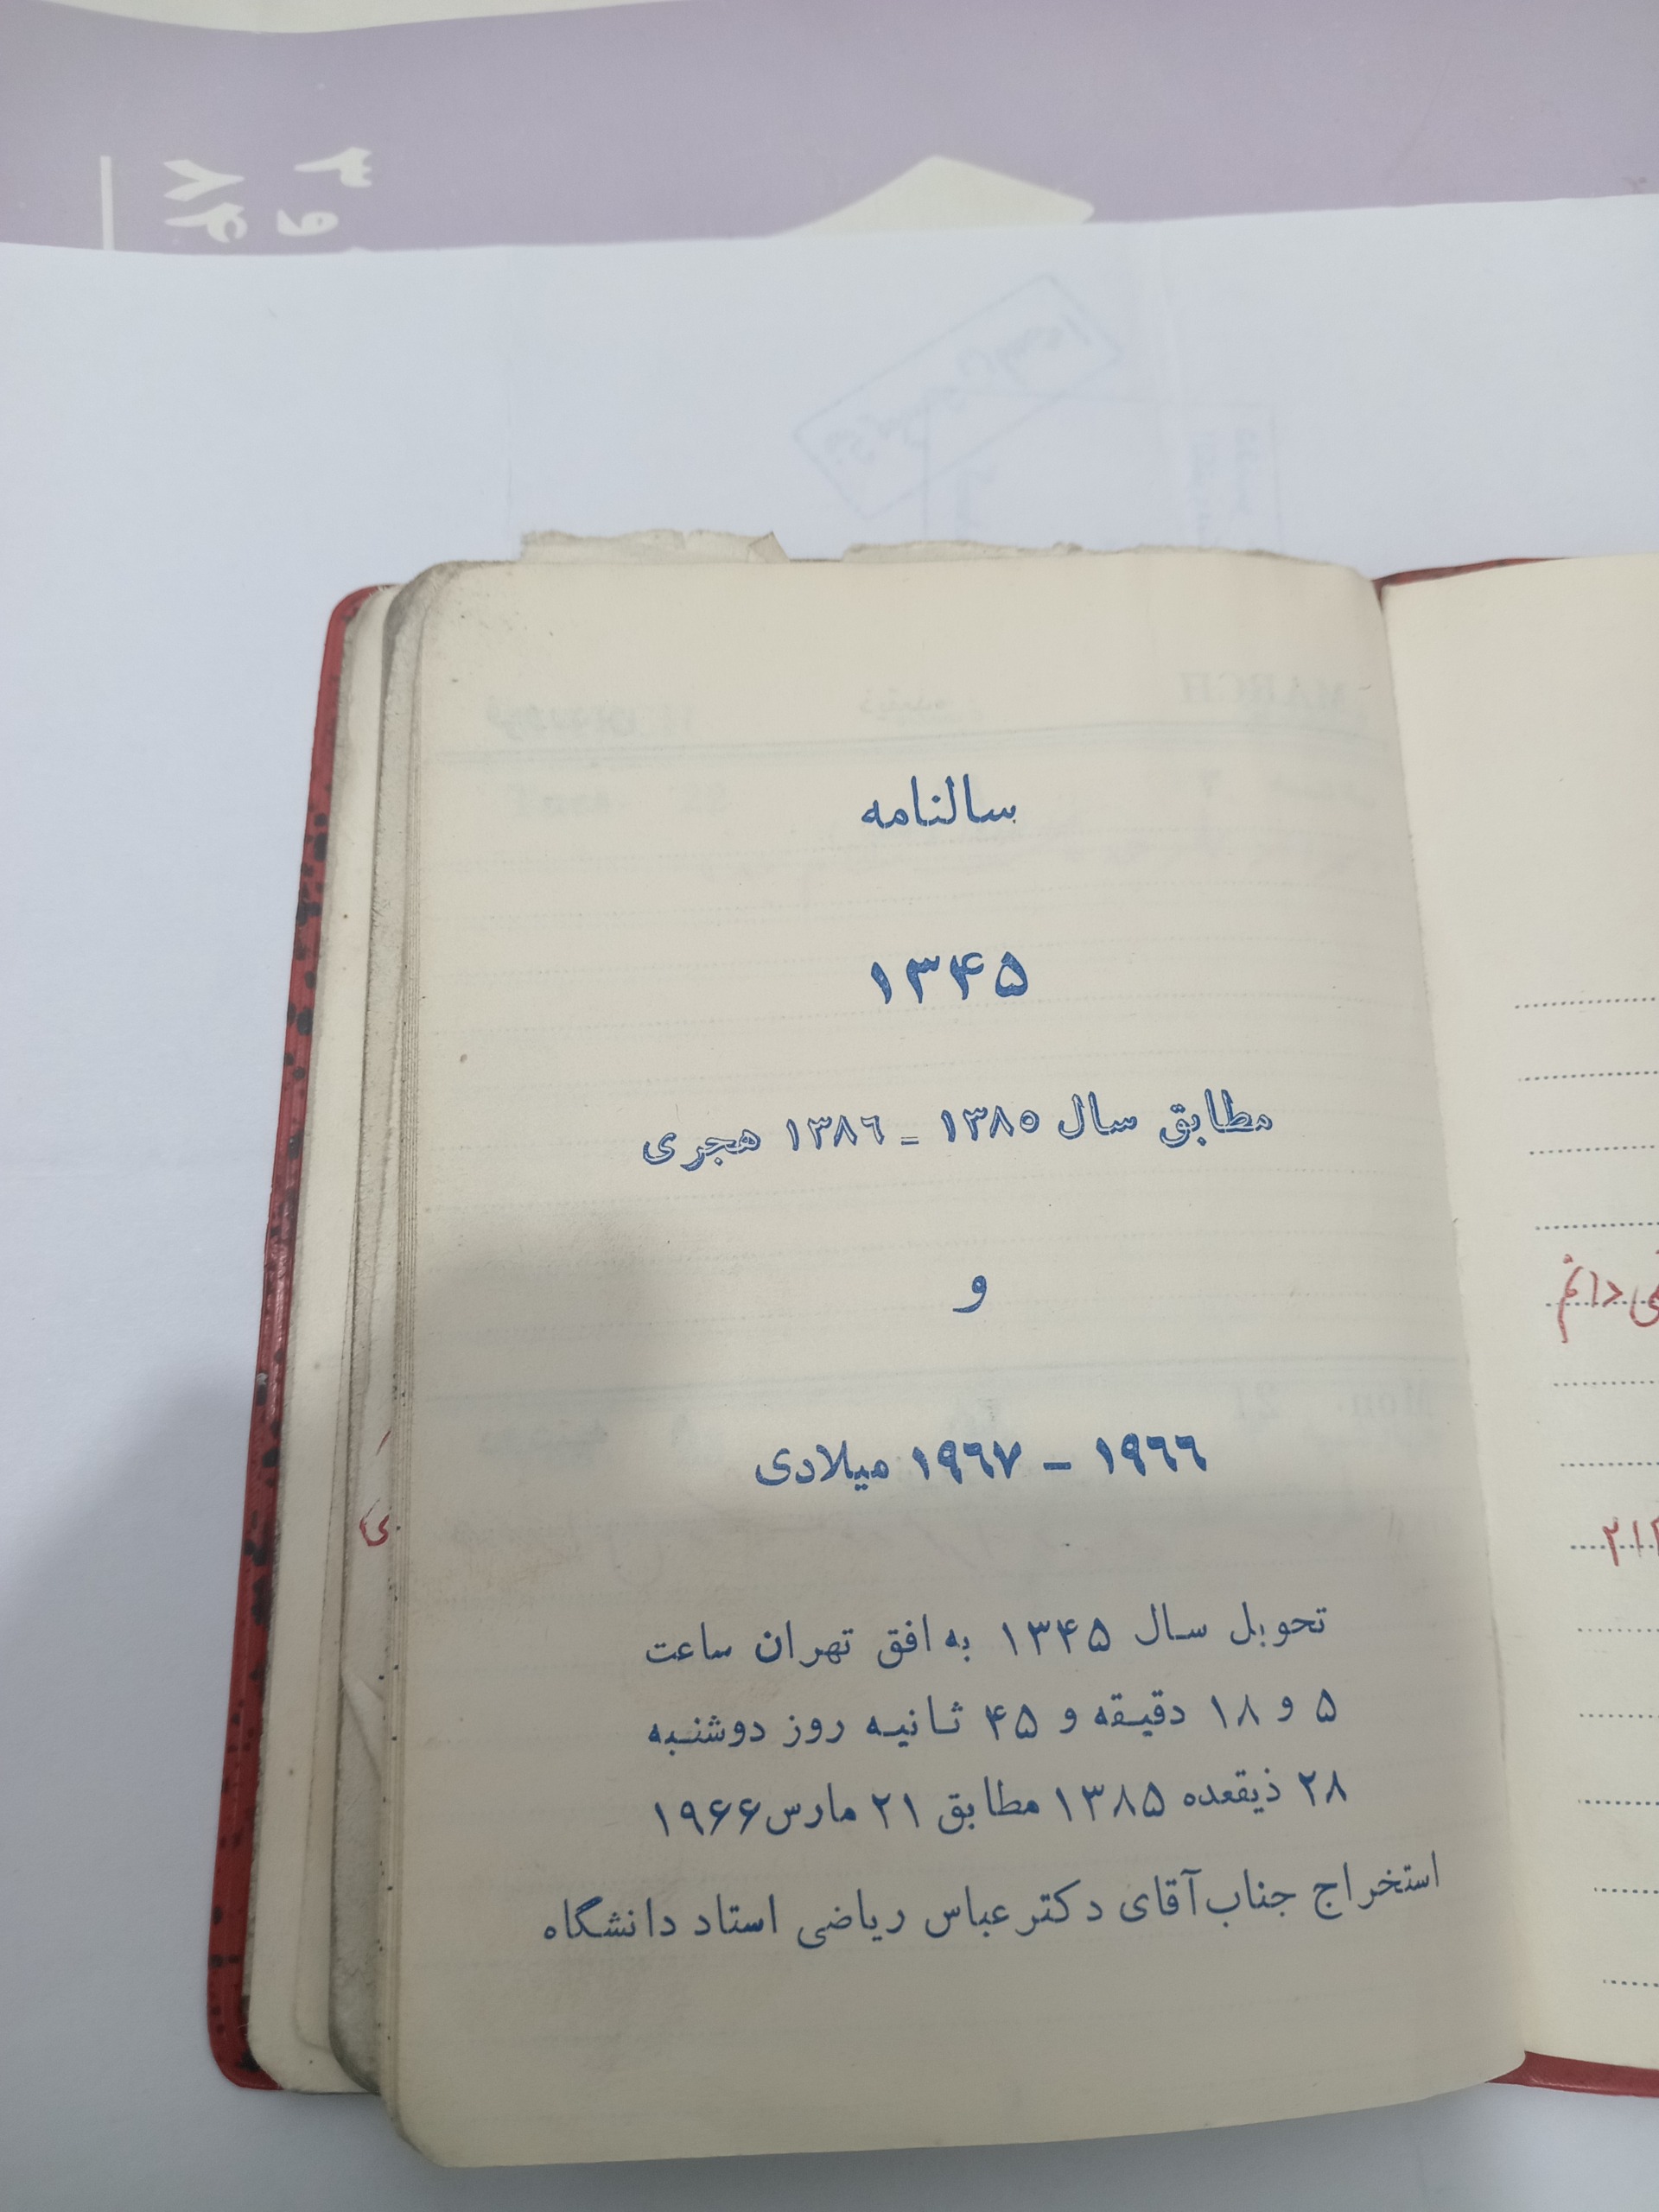 سالنامه
۱۳۴۵
مطابق سال ۱۳۸۵ ـ ۱۳۸۶ هجری
و
۱۹۶۶ – ۱۹۶۷ میلادی
تحویل سال ۱۳۴۵ به افق تهران ساعت
۵ و ۱۸ دقیقه و ۴۵ ثانیه روز دوشنبه
۲۸ ذیقعده ۱۳۸۵ مطابق ۲۱ مارس ۱۹۶۶
استخراج جناب آقای دکتر عباس ریاضی استاد دانشگاه